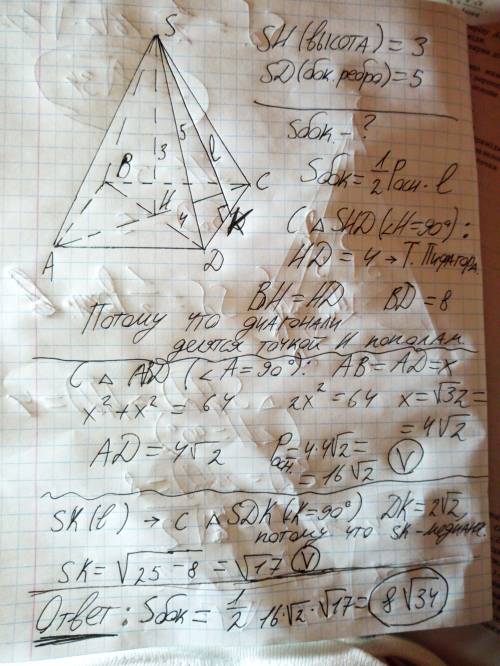 S
SH (высота) = 3
SD (бок. ребро) = 5
Sбок. - ?
Sбок = 1/2 Pосн · l
5
l
3
B
C
H
4
5
K
A
D
С △ SHD (∠H=90°):
HD = 4 → Т. Пифагора.
BH = HD BD = 8
Потому что диагонали
делятся точкой H пополам.
С △ ABD (∠A=90°): AB = AD = x
x² + x² = 64 2x² = 64 x = √32 =
= 4√2
AD = 4√2 Pосн. = 4·4√2 =
= 16√2 V
SK(l) → С △ SDK (∠K=90°) DK = 2√2,
потому что SK - медиана.
SK = √25-8 = √17 V
Ответ: Sбок = 1/2 16·√2·√17 = 8√34